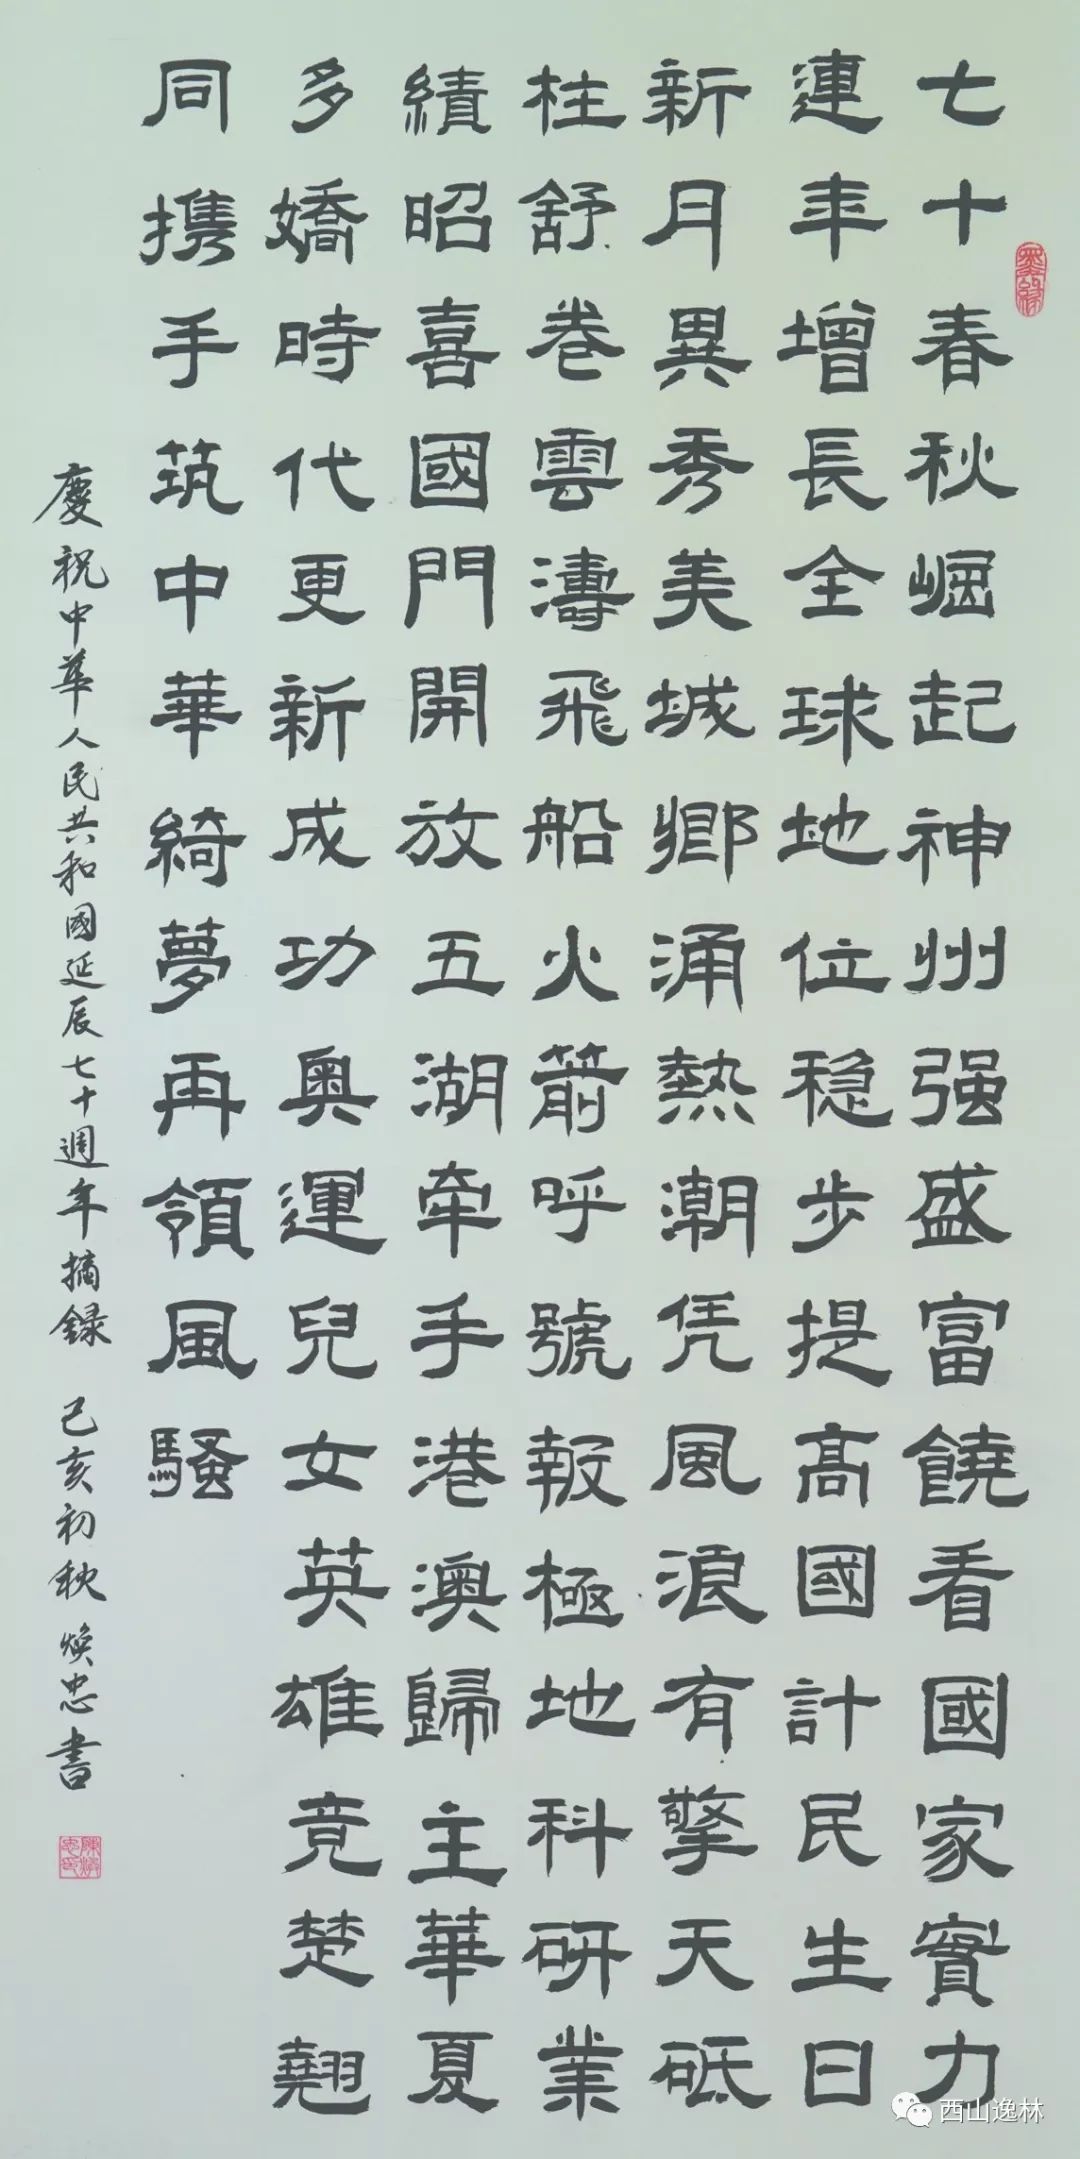 七十春秋崛起神州强盛富饒看國家實力
連年增長全球地位稳步提高國計民生日
新月異秀美城鄉涌熱潮凭風浪有擎天砥
柱舒卷雲濤飛船火箭呼號報極地科研業
績昭喜國門開放五湖牽手港澳歸主華夏
多嬌時代更新成功奥運兒女英雄竞楚翹
同携手筑中華綺夢再領風騷
慶祝中華人民共和國延辰七十週年摘録 己亥初秋 焕忠書
西山逸林